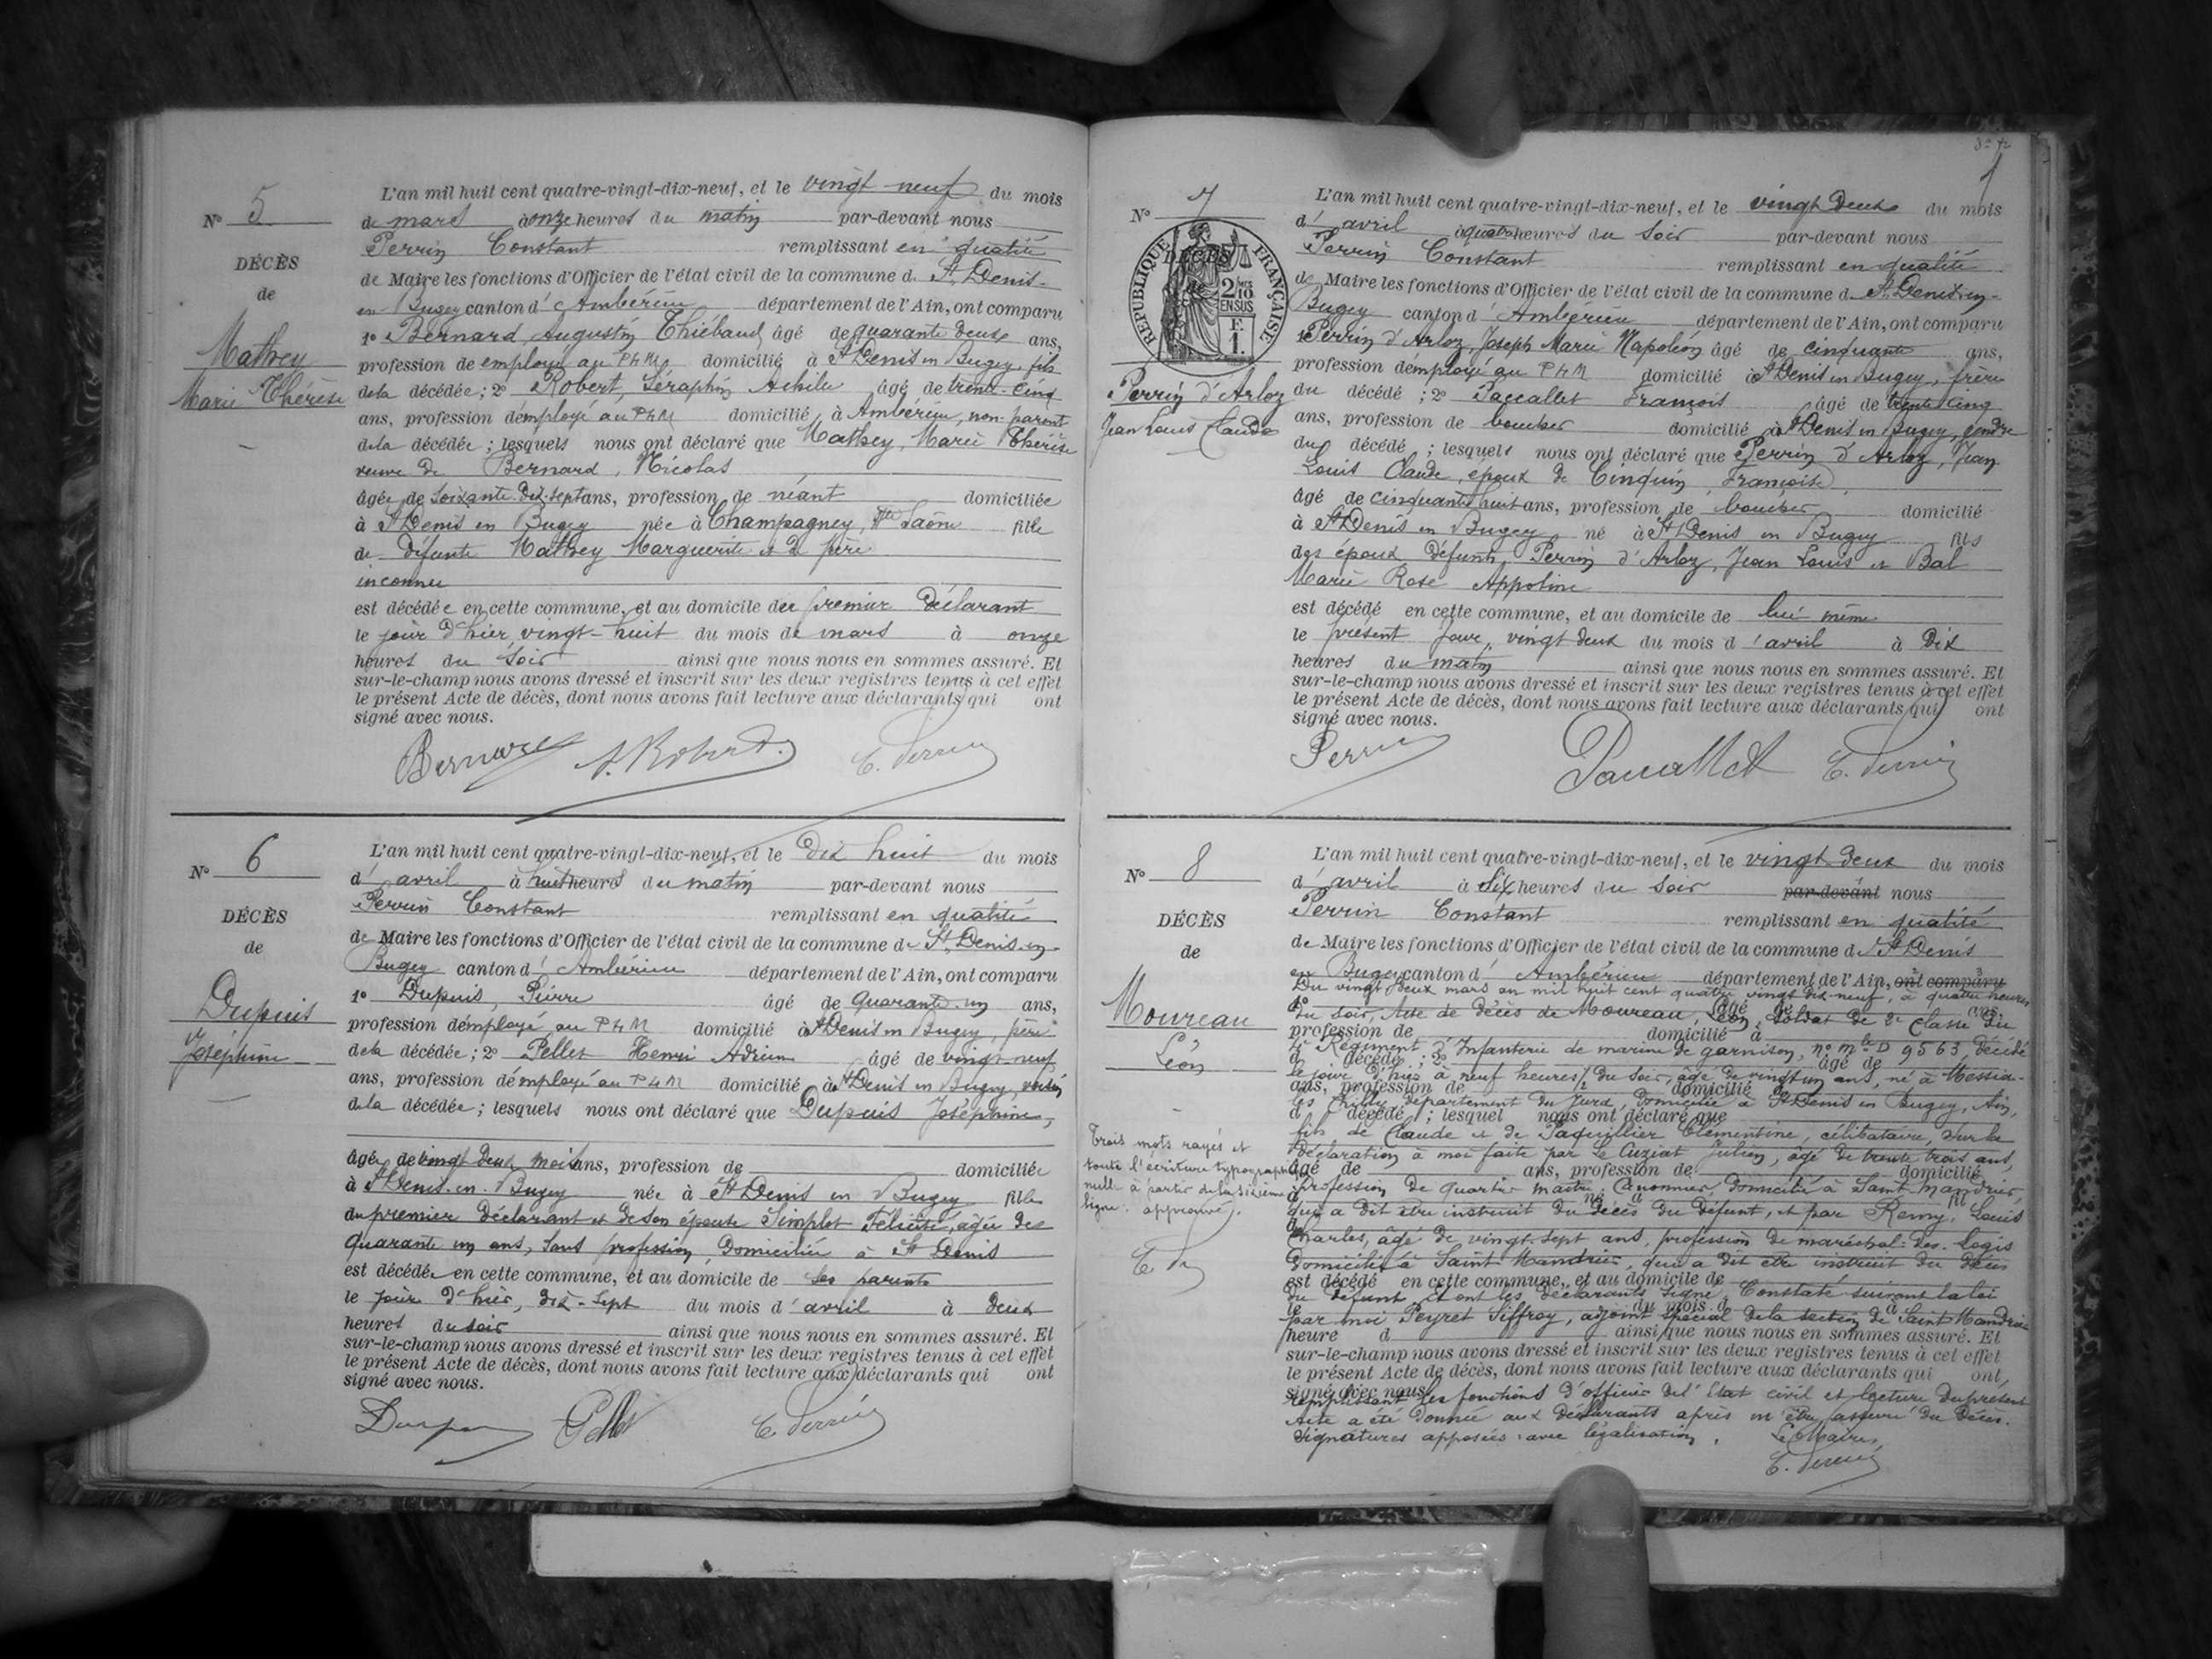 L'an mil huit cent quatre-vingt-dix-neuf, et le vingt neuf du mois
N° 5
de mars à onze heures du matin par-devant nous
Perrin Constant remplissant en qualité
DÉCÈS
de Maire les fonctions d'Officier de l'état civil de la commune d. St Denis-
de
en Bugey canton d' Ambérieu département de l'Ain, ont comparu
1° Bernard, Augustin Thiébaud âgé de quarante deux ans,
Mathey
profession de employé au PLM domicilié à St Denis en Bugey, fils
Marie Thérèse
de la décédée ; 2° Robert, Séraphin Achile âgé de trente-cinq
ans, profession d'employé au PLM domicilié à Ambérieu, non parent
de la décédée ; lesquels nous ont déclaré que Mathey, Marie Thérèse
veuve de Bernard, Nicolas
âgée de soixante-dix-sept ans, profession de néant domiciliée
à St Denis en Bugey née à Champagney, Hte Saône fille
de défunte Mathey Marguerite et de père
inconnu
est décédée en cette commune, et au domicile du premier déclarant
le jour d'hier, vingt-huit du mois de mars à onze
heures du soir ainsi que nous nous en sommes assuré. Et
sur-le-champ nous avons dressé et inscrit sur les deux registres tenus à cet effet
le présent Acte de décès, dont nous avons fait lecture aux déclarants qui ont
signé avec nous.
Bernard A. Robert C. Perrin
L'an mil huit cent quatre-vingt-dix-neuf, et le dix huit du mois
N° 6
d' avril à huit heures du matin par-devant nous
Perrin Constant remplissant en qualité
DÉCÈS
de Maire les fonctions d'Officier de l'état civil de la commune de St Denis-en-
de
Bugey canton d' Ambérieu département de l'Ain, ont comparu
1° Dupuis, Pierre âgé de quarante-un ans,
Dupuis
profession d'employé au PLM domicilié à St Denis en Bugey, père
Joséphine
de la décédée ; 2° Pellet Henri Adrien âgé de vingt-neuf
ans, profession d'employé au PLM domicilié à St Denis en Bugey, voisin
de la décédée ; lesquels nous ont déclaré que Dupuis Joséphine,
âgée de vingt deux mois ans, profession de domiciliée
à St Denis-en-Bugey née à St Denis en Bugey fille
du premier déclarant et de son épouse Simplot Félicité, âgée de
quarante un ans, sans profession, domiciliée à St Denis
est décédée en cette commune, et au domicile de ses parents
le jour d'hier, dix-sept du mois d'avril à deux
heures du soir ainsi que nous nous en sommes assuré. Et
sur-le-champ nous avons dressé et inscrit sur les deux registres tenus à cet effet
le présent Acte de décès, dont nous avons fait lecture aux déclarants qui ont
signé avec nous.
Pellet C. Perrin
L'an mil huit cent quatre-vingt-dix-neuf, et le vingt deux du mois
N° 7
d' avril à quatre heures du soir par-devant nous
Perrin Constant remplissant en qualité
RÉPUBLIQUE FRANÇAISE
DÉCÈS
de
2/10 EN SUS
F. 1.
de Maire les fonctions d'Officier de l'état civil de la commune d. St Denis en-
Bugey canton d' Ambérieu département de l'Ain, ont comparu
1° Perrin d'Arloz, Joseph Marie Napoléon âgé de cinquante ans,
profession d'employé au PLM domicilié à St Denis en Bugey, frère
Perrin d'Arloz
Jean Louis Claude
du décédé ; 2° Paccallet François âgé de trente cinq
ans, profession de boucher domicilié à St Denis en Bugey, gendre
du décédé ; lesquels nous ont déclaré que Perrin d'Arloz, Jean
Louis Claude, époux de Cinquin, Françoise,
âgé de cinquante huit ans, profession de boucher domicilié
à St Denis en Bugey né à St Denis en Bugey fils
des époux défunts Perrin d'Arloz, Jean Louis et Bal
Marie Rose Appoline
est décédé en cette commune, et au domicile de lui même
le présent jour, vingt deux du mois d'avril à dix
heures du matin ainsi que nous nous en sommes assuré. Et
sur-le-champ nous avons dressé et inscrit sur les deux registres tenus à cet effet
le présent Acte de décès, dont nous avons fait lecture aux déclarants qui ont
signé avec nous.
Perrin Paccallet C. Perrin
L'an mil huit cent quatre-vingt-dix-neuf, et le vingt deux du mois
N° 8
d' avril à six heures du soir par-devant nous
Perrin Constant remplissant en qualité
DÉCÈS
de Maire les fonctions d'Officier de l'état civil de la commune d. St Denis
de
en Bugey canton d' Ambérieu département de l'Ain, ont comparu
Du vingt deux mars an mil huit cent quatre vingt dix-neuf, à quatre heures
1° âgé de ans,
du soir, Acte de décès de Moureau, Léon, soldat de 2e classe du
Moureau
Léon
profession de domicilié à
4e Régiment d'Infanterie de marine de garnison, n° mle D 9563, décédé
d décédé ; 2° âgé de
le jour d'hier à neuf heures 1/2 du soir, âgé de vingt un ans, né à Messia-
ans, profession de domicilié à
les Chilly, département du Jura, domicilié à St Denis en Bugey, Ain,
d décédé ; lesquel nous ont déclaré que
fils de Claude et de Paquillier Clémentine, célibataire, sur la
déclaration à moi faite par Le Cuziat Julien, âgé de trente trois ans,
âgé de ans, profession de domicilié
profession de quartier maître Canonnier, domicilié à Saint-Mandrier,
à né à fils
qui a dit être instruit du décès du défunt, et par Remy, Louis
d
Charles, âgé de vingt-sept ans, profession de maréchal-des-logis
domicilié à Saint-Mandrier, qui a dit être instruit du décès
est décédé en cette commune, et au domicile de
du défunt, et ont les déclarants signé. Constaté suivant la loi
le du mois d à
par moi Peyret Siffroy, adjoint spécial de la section de Saint Mandrier
heure d ainsi que nous nous en sommes assuré. Et
sur-le-champ nous avons dressé et inscrit sur les deux registres tenus à cet effet
le présent Acte de décès, dont nous avons fait lecture aux déclarants qui ont
signé avec nous.
remplissant les fonctions d'officier de l'Etat civil et lecture du présent
Acte a été donnée aux déclarants après m'être assuré du décès.
Signatures apposées avec légalisation.
Le Maire,
C. Perrin
Trois mots rayés et
toute l'écriture typographique
nulle à partir de la sixième
ligne. approuvé.